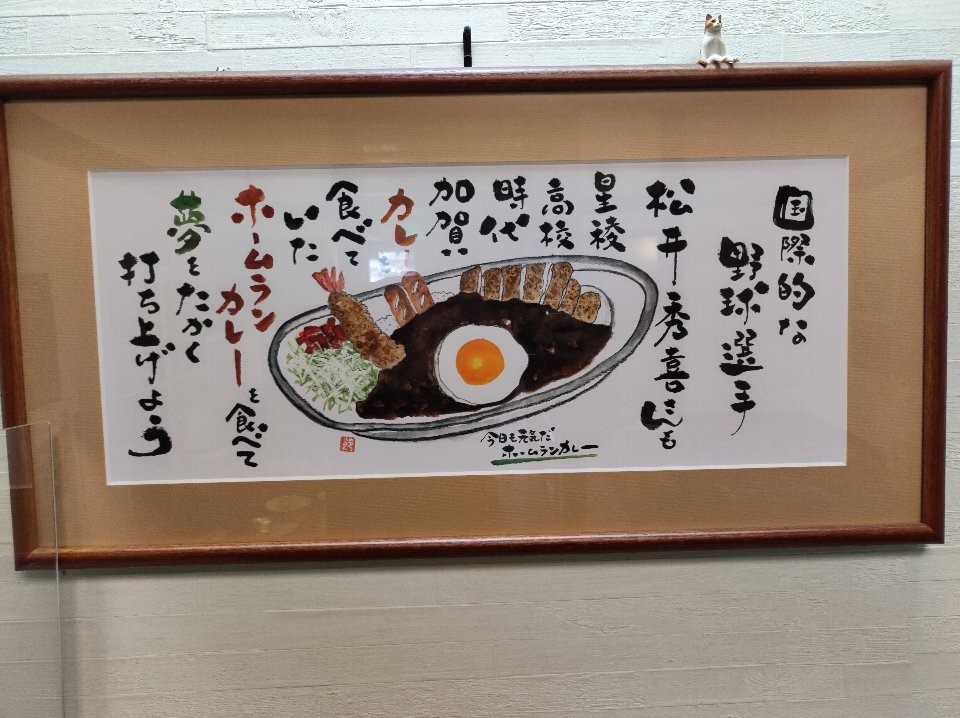 国際的な
野球選手
松井秀喜さんも
星稜
高校
時代
加賀は
カレーを
食べて
いた
ホームラン
カレーを食べて
夢をたかく
打ち上げよう
今日も元気だ
ホームランカレー